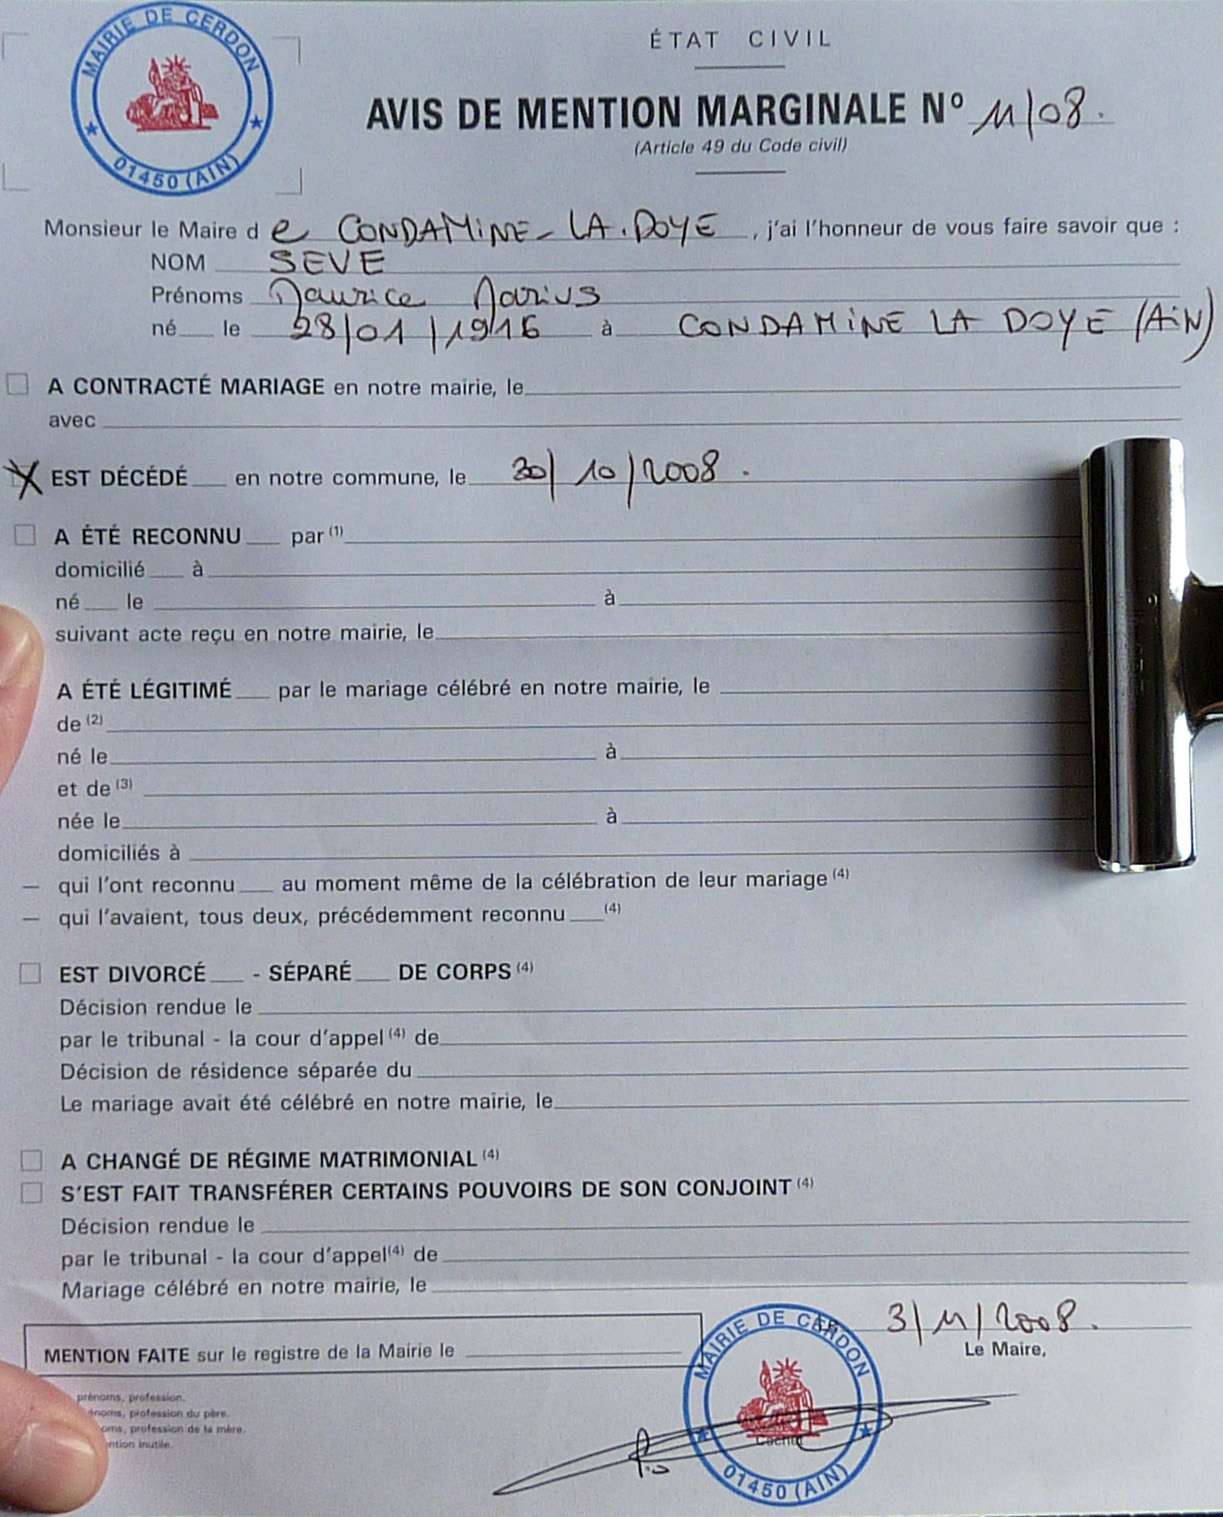 MAIRIE DE CERDON
01450 (AIN)
ÉTAT CIVIL
AVIS DE MENTION MARGINALE N° 11/08.
(Article 49 du Code civil)
Monsieur le Maire d e CONDAMINE-LA.DOYE, j'ai l'honneur de vous faire savoir que :
NOM SEVE
Prénoms Maurice Marius
né le 28/01/1916 à CONDAMINE LA DOYE (AIN)
A CONTRACTÉ MARIAGE en notre mairie, le
avec
X EST DÉCÉDÉ en notre commune, le 30/10/2008.
A ÉTÉ RECONNU par (1)
domicilié à
né le à
suivant acte reçu en notre mairie, le
A ÉTÉ LÉGITIMÉ par le mariage célébré en notre mairie, le
de (2)
né le à
et de (3)
née le à
domiciliés à
— qui l'ont reconnu au moment même de la célébration de leur mariage (4)
— qui l'avaient, tous deux, précédemment reconnu (4)
EST DIVORCÉ - SÉPARÉ DE CORPS (4)
Décision rendue le
par le tribunal - la cour d'appel (4) de
Décision de résidence séparée du
Le mariage avait été célébré en notre mairie, le
A CHANGÉ DE RÉGIME MATRIMONIAL (4)
S'EST FAIT TRANSFÉRER CERTAINS POUVOIRS DE SON CONJOINT (4)
Décision rendue le
par le tribunal - la cour d'appel (4) de
Mariage célébré en notre mairie, le
3/11/2008.
MENTION FAITE sur le registre de la Mairie le
Le Maire,
MAIRIE DE CERDON
Cachet
01450 (AIN)
prénoms, profession.
profession du père.
profession de la mère.
inutile.